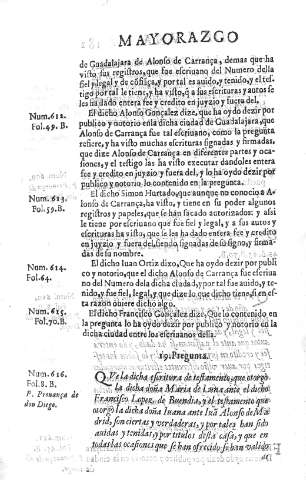 MAYORAZGO
de Guadalajara de Alonso de Carrança, demas que ha
visto sus registros, que fue escriuano del Numero della
fiel y legal y de cófiáça, y por tal es auido, y tenido, y el tes-
tigo por tal le tiene, y ha visto, q̃ a sus escrituras y autos se
les ha dado entera fee y credito en juyzio y fuera del,
Num. 612.
Fol. 49. B.
El dicho Alonso Gonçalez dize, que ha oydo dezir por
publico y notorio en la dicha ciudad de Guadalajara, que
Alonso de Carrança fue tal escriuano, como la pregunta
refiere, y ha visto muchas escrituras signadas y firmadas,
que dize Alonso de Carrança en diferentes partes y oca-
siones, y el testigo las ha visto executar dandoles entera
fee y credito en juyzio y fuera del, y lo ha oydo dezir por
publico y notorio, lo contenido en la pregunta.
Num. 613.
Fol. 59. B.
El dicho Simon Hurtado, que aunque no conocio a A-
lonso de Carrança, ha visto, y tiene en su poder algunos
registros y papeles, que se han sacado autorizados: y assi
le tiene por escriuano que fue fiel y legal, y a sus autos y
escrituras ha visto, que se les ha dado entera fee y credito
en juyzio y fuera del, siendo signadas de su signo, y firma-
das de su nombre.
Num. 614.
Fol. 64.
El dicho Iuan Ortiz dize, Que ha oydo dezir por publi-
co y notorio, que el dicho Alonso de Carrança fue escriua-
no del Numero desta dicha ciudad, y por tal fue auido, y te-
nido, y fue fiel, legal, y que dize lo que dicho tiene, si en es-
ta razon ouiere dicho algo.
Num. 615.
Fol. 70. B.
El dicho Francisco Gonçalez dize, Que lo contenido en
la pregunta lo ha oydo dezir por publico y notorio en la
dicha ciudad entre los escriuanos della.
19. Pregunta.
Num. 616.
Fol. 8. B.
P. Prouança de
don Diego.
QVe la dicha escritura de testamento, que otorgò
la dicha doña Maria de Luna ante el dicho
Francisco Lopez, de Buendia, y el testamento que
otorgò la dicha doña Iuana ante Iuã Alonso de Ma-
drid, son ciertas y verdaderas, y por tales han sido
auidas y tenidas, y por titulos desta casa, y que en
todas las ocasiones que se han ofrecido se han valido